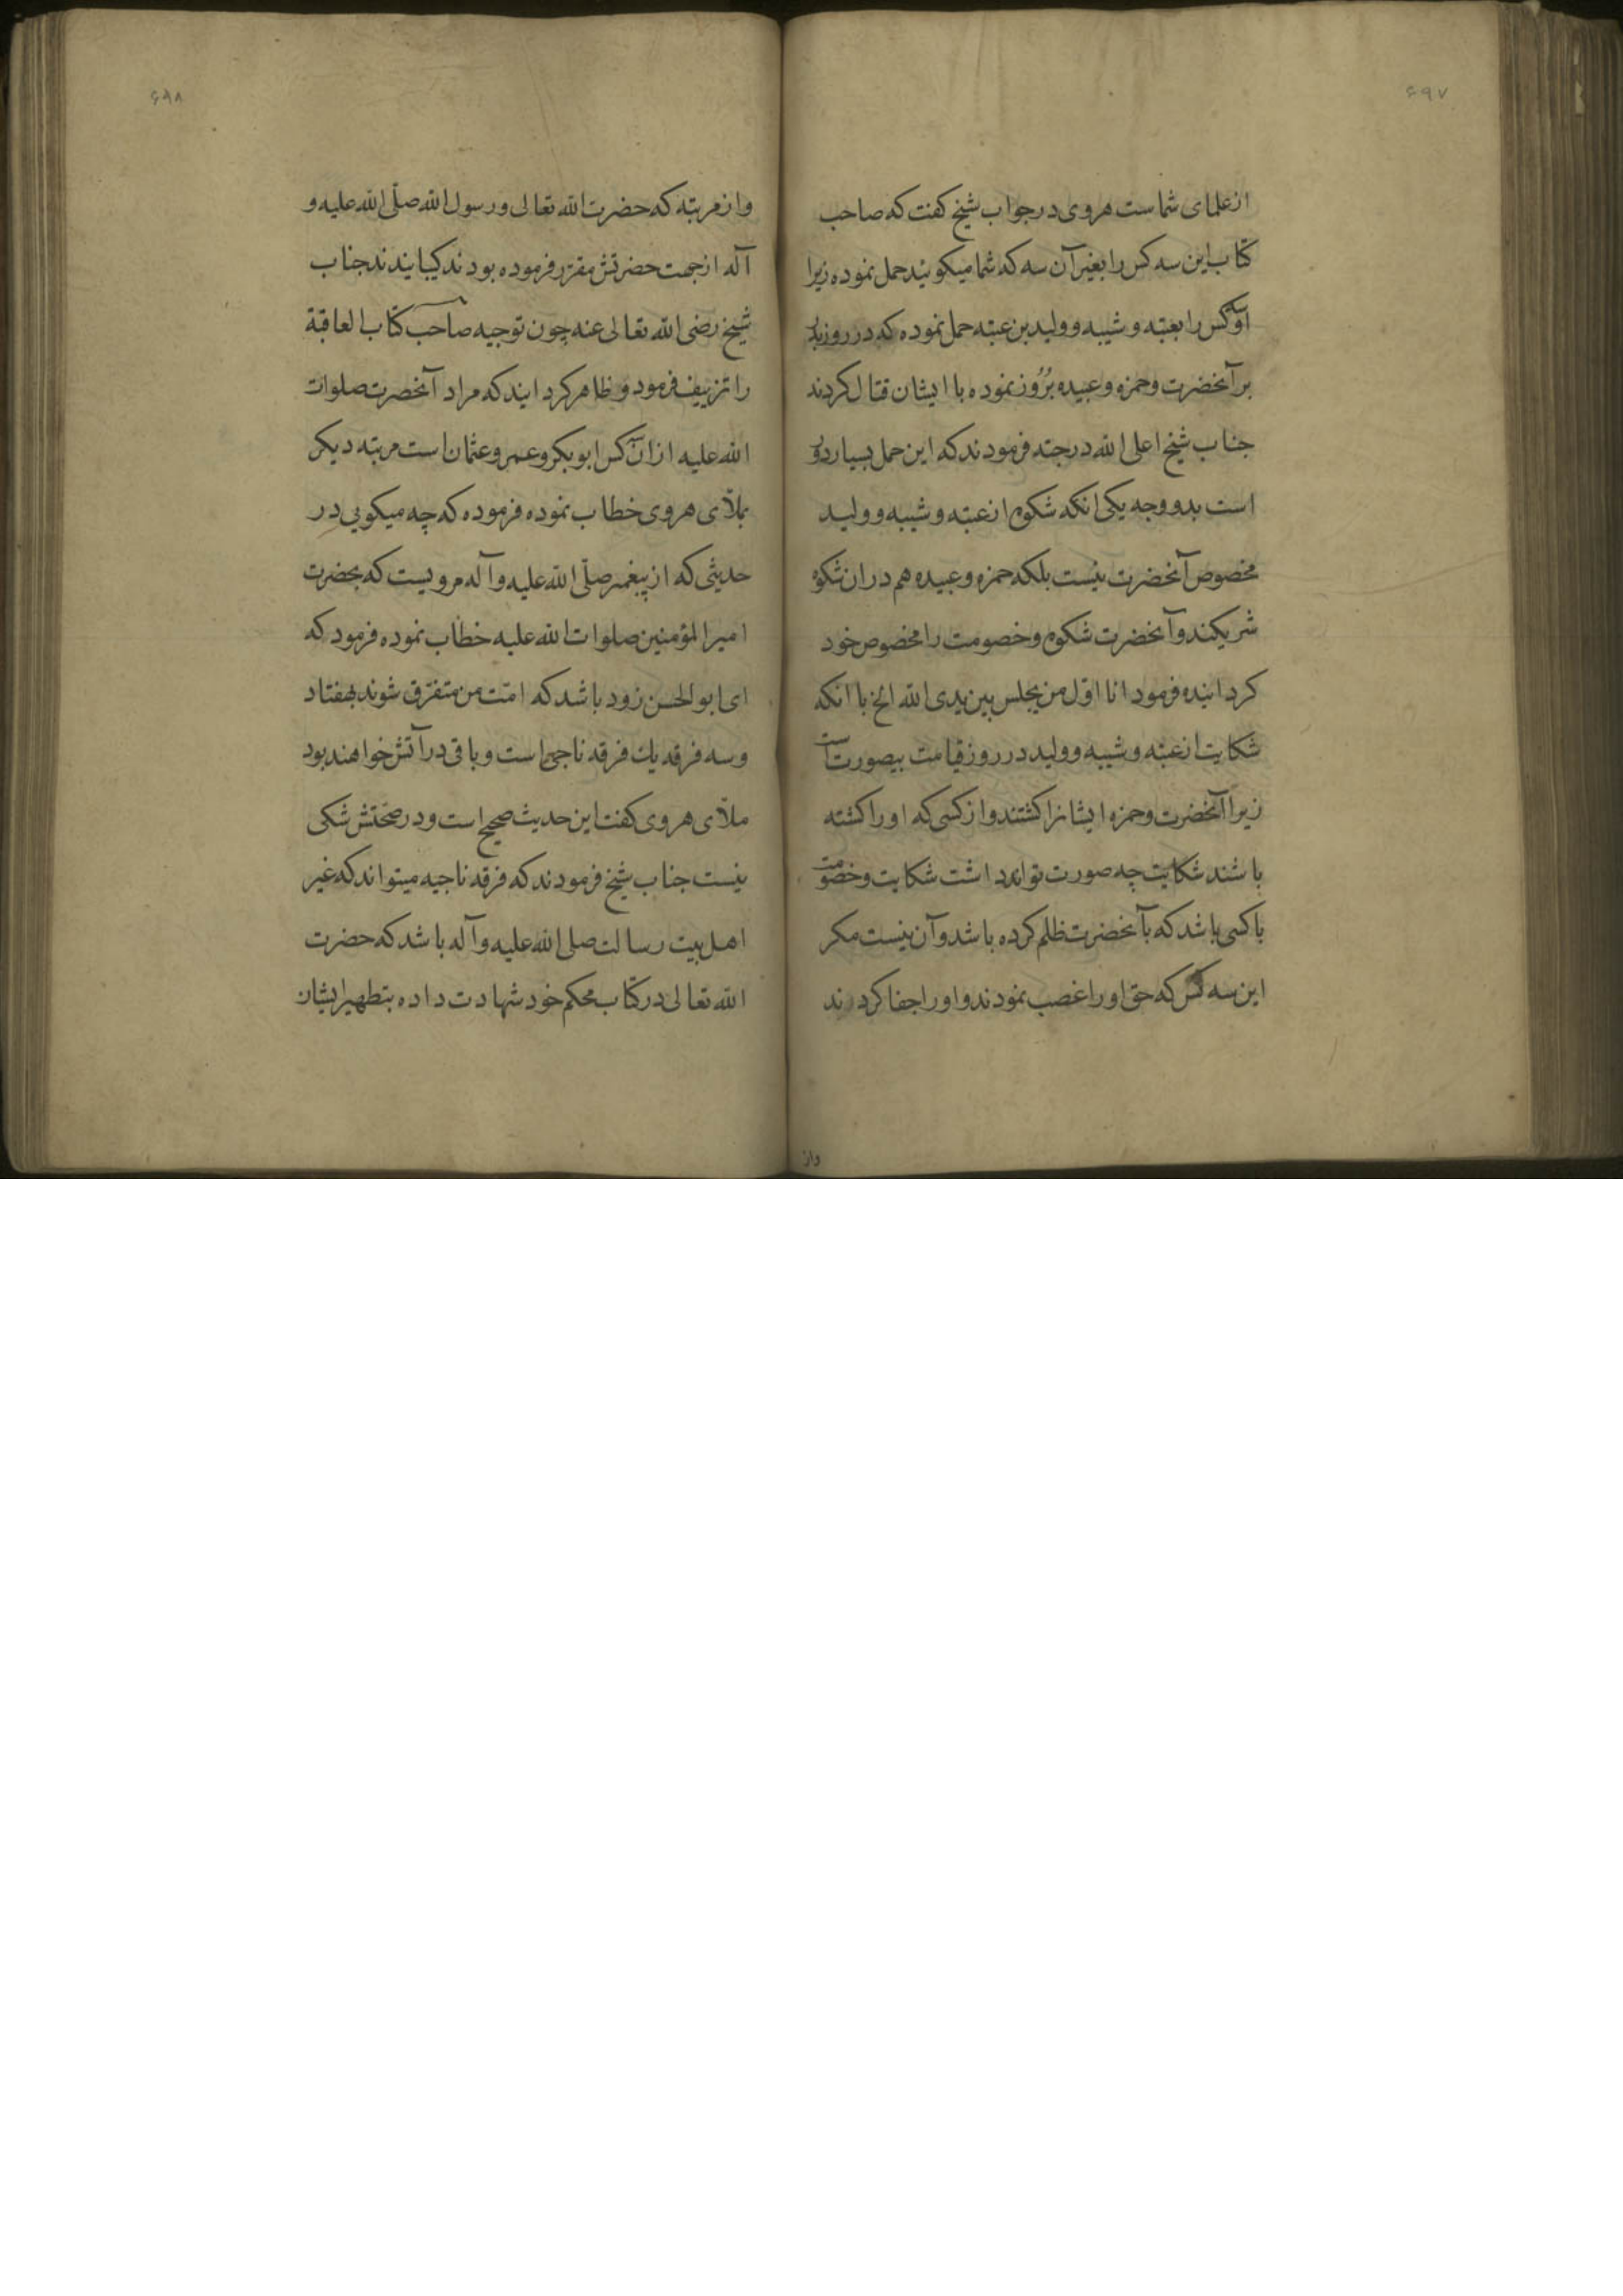 ۶۹۷
از علمای شماست هروی در جواب شیخ کفت که صاحب
کتاب این سه کس را بغیر آن سه که شما میکوئید حمل نموده زیرا
او سه کس را بعتبه و شیبه و ولید بن عتبه حمل نموده که در روز بدر
بر آنحضرت و حمزه و عبیده بُرُوز نموده با ایشان قتال کردند
جناب شیخ اعلی الله درجته فرمودند که این حمل بسیار دور
است بدو وجه یکی انکه شکوه از عتبه و شیبه و ولید
مخصوص آنحضرت نیست بلکه حمزه و عبیده هم در ان شکوه
شریکند و آنحضرت شکوه و خصومت را مخصوص خود
کردانیده فرمود انا اوّل من یجلس بین یدی الله الخ با انکه
شکایت از عتبه و شیبه و ولید در روز قیامت بیصورت است
زیرا آنحضرت و حمزه ایشانرا کشتند و از کسی که او را کشته
باشند شکایت چه صورت تواند داشت شکایت و خصومت
با کسی باشد که بآنحضرت ظلم کرده باشد و آن نیست مکر
این سه کس که حق او را غصب نمودند و او را جفا کردند
واز
۶۹۸
و از مرتبه که حضرت الله تعالی و رسول الله صلّی الله علیه و
آله از جهت حضرتش مقرّر فرموده بودند کیبایندند جناب
شیخ رضی الله تعالی عنه چون توجیه صاحب کتاب العاقبة
را تزییف فرمود و ظاهر کردایند که مراد آنحضرت صلوات
الله علیه از ان سه کس ابو بکر و عمر و عثمان است مرتبه دیکر
بملّای هروی خطاب نموده فرموده که چه میکویی در
حدیثی که از پیغمبر صلّی الله علیه و آله مرویست که بحضرت
امیر المؤمنین صلوات الله علیه خطاب نموده فرمود که
ای ابو الحسن زود باشد که امّت من متفرّق شوند بهفتاد
و سه فرقه یك فرقه ناجی است و باقی در آتش خواهند بود
ملّای هروی کفت این حدیث صحیح است و در صحّتش شکی
نیست جناب شیخ فرمودند که فرقه ناجیه میتواند که غیر
اهل بیت رسالت صلی الله علیه و آله باشد که حضرت
الله تعالی در کتاب محکم خود شهادت داده بتطهیر ایشان